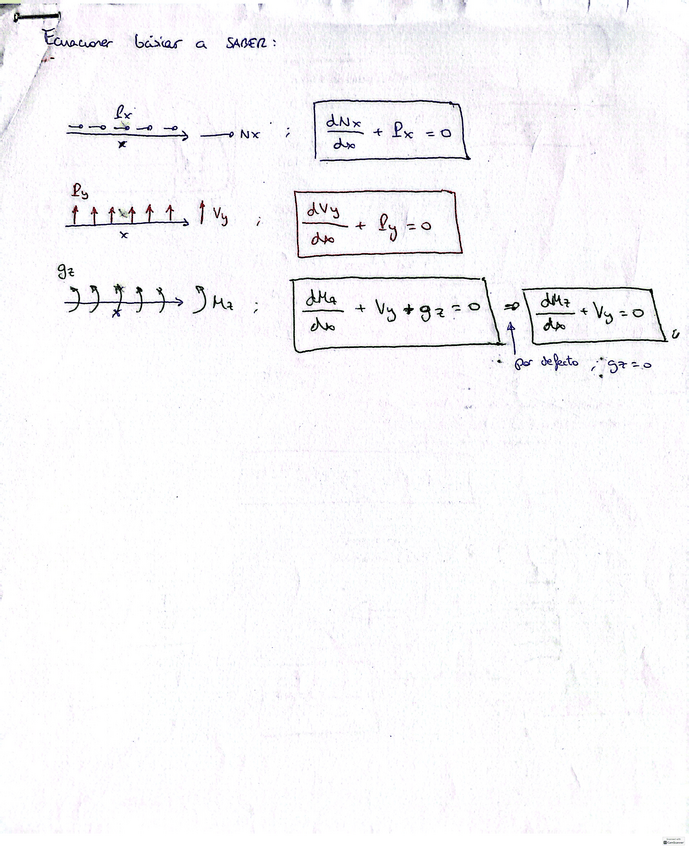 Ecuaciones básicas a SABER:
Px
x
Nx ; dNx/dx + Px = 0
Py
x
Vy ; dVy/dx + Py = 0
gz
x
Mz ; dMz/dx + Vy + gz = 0 ⇒ dMz/dx + Vy = 0
por defecto, gz = 0